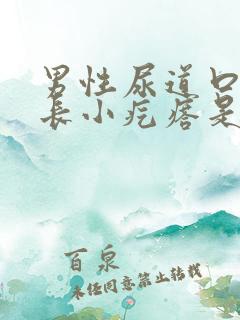 男性尿道口
长小疙瘩是
百泉
未经同意禁止转载